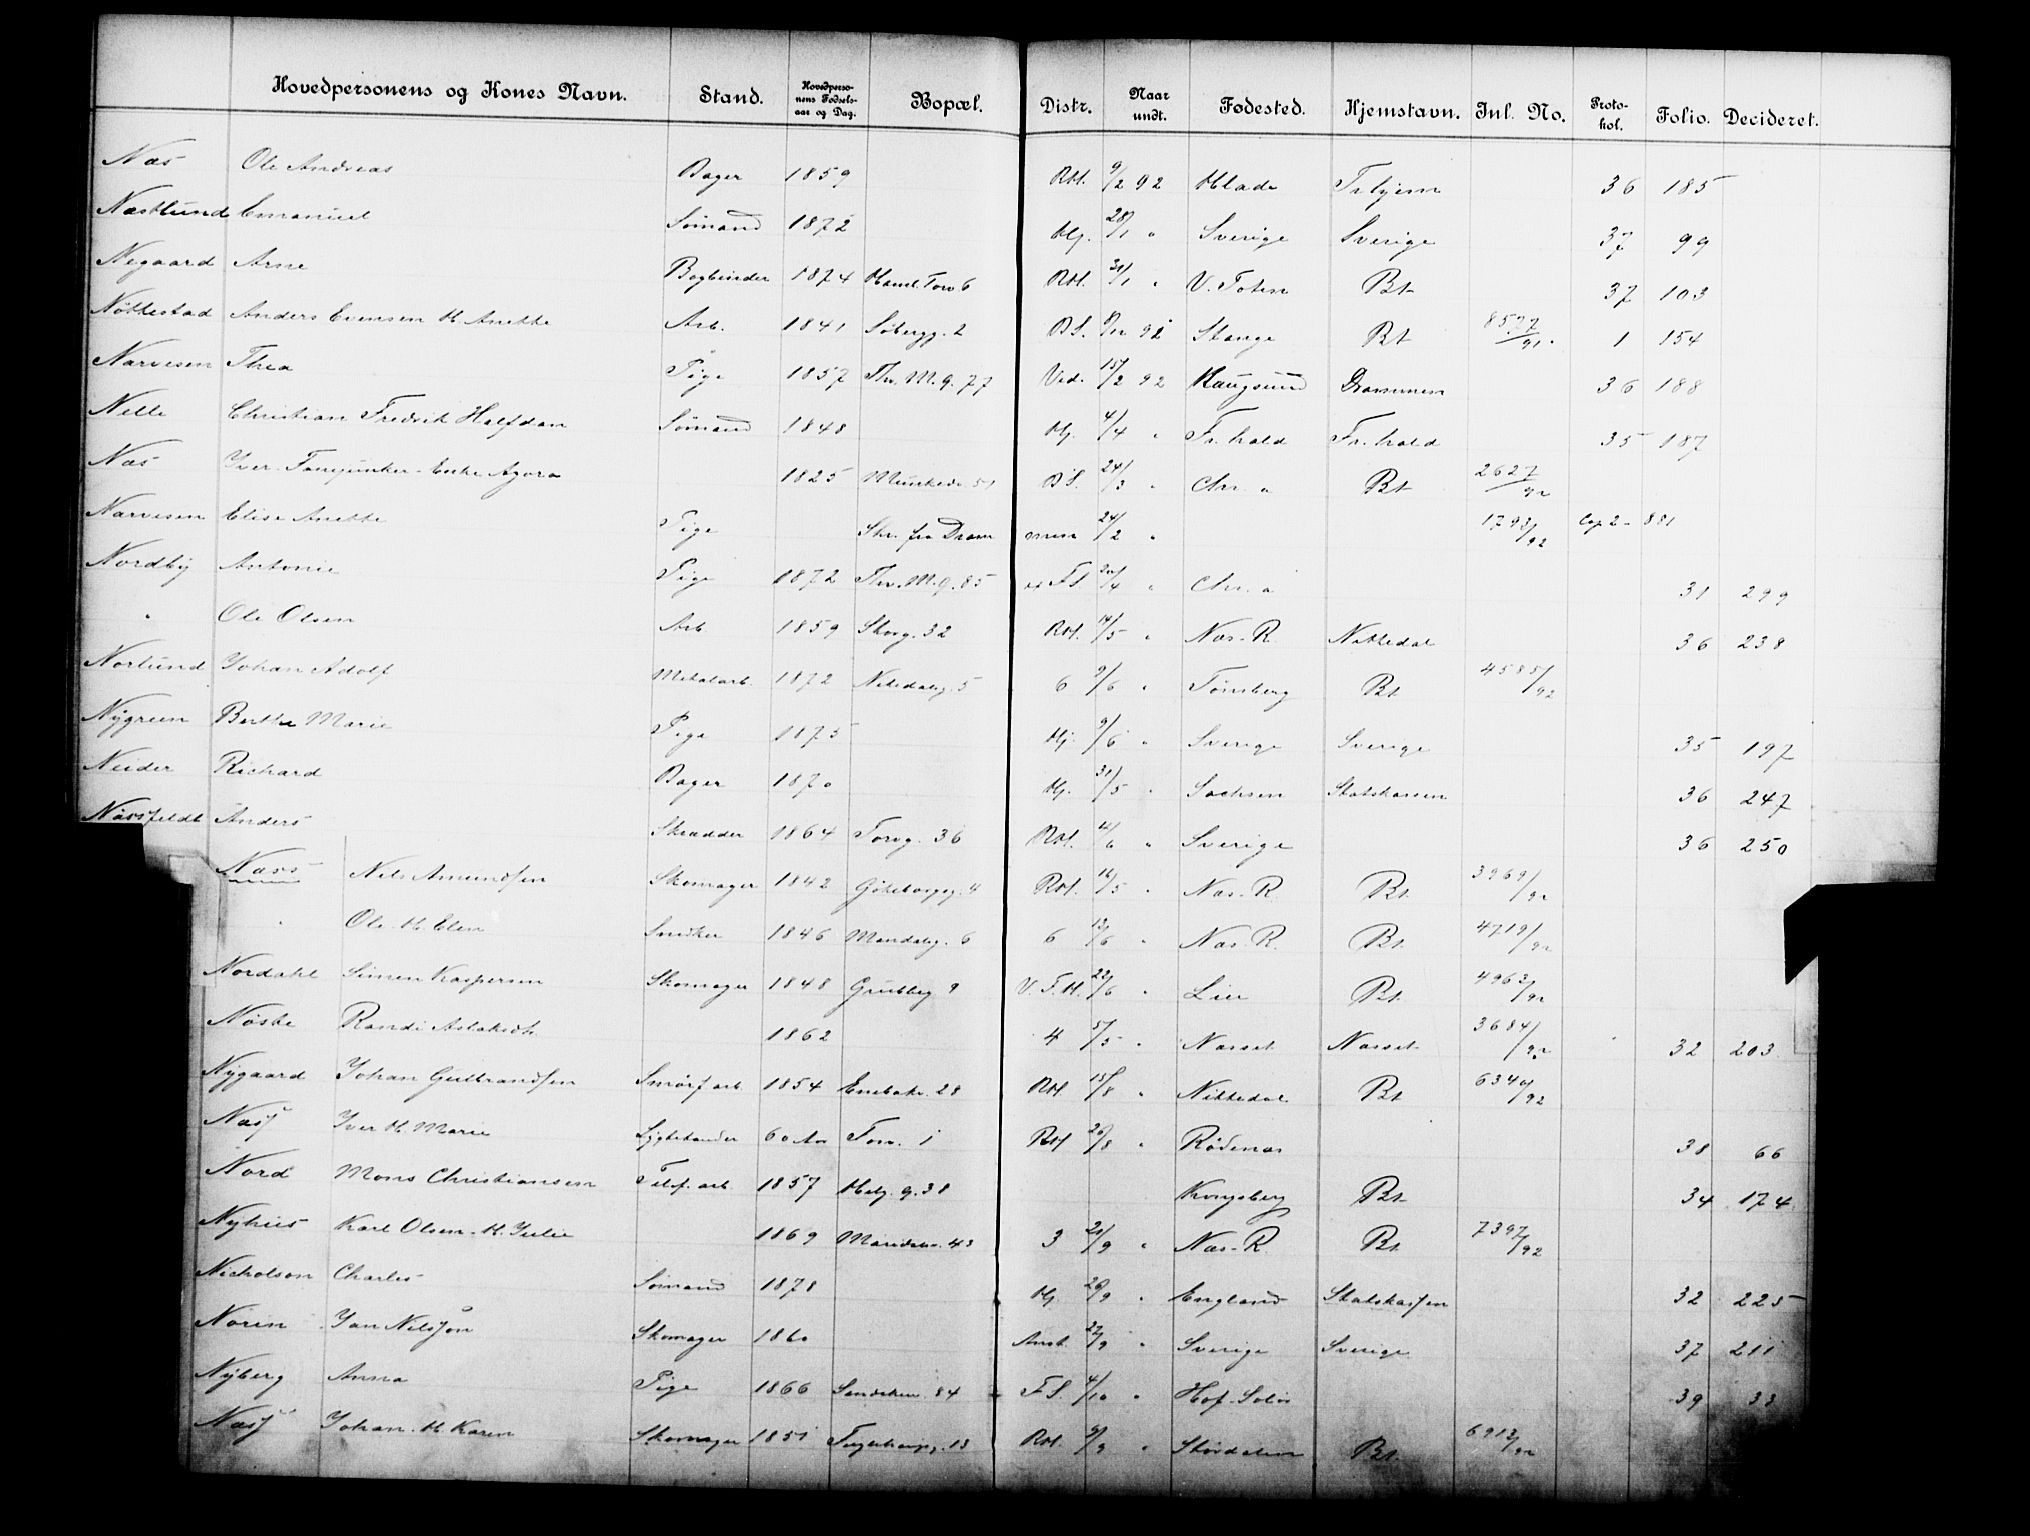 Hovedpersonens og Kones Navn. Stand. Hovedpersonens Fødselsaar og Dag. Bopæl. Distr. Naar undt. Fødested. Hjemstavn. Inl. No. Protokol. Folio. Decideret.
Næs Ole Andreas Bager 1859 RM. 9/2 92 Hlade Tr.hjem 36 185
Næstlund Emanuel Sømand 1872 Hj. 28/1 " Sverige Sverige 37 99
Negaard Arne Bogbinder 1874 Haml. Torv 6 RM. 30/1 " V. Toten Bt 37 103
Nøttestad Anders Evensen H. Anette Arb. 1841 Søbergg. 2 BS. 92 Stange Bt 8527/91. 1 154
Narvesen Thea Pige 1857 Thv. M. g. 77 Vid. 15/2 92 Haugsund Drammen 36 188
Nelle Christian Fredrik Halfdan Sømand 1848 Hj. 4/4 " Fr.hald Fr.hald 35 187
Næs Iver Enke 1825 Munkeds 51 BS. 24/3 " Chr.a Bt 2627/92
Narvesen Elise Anette Pige Skr. fra Drammen 24/2 " 1793/92 Cop 2 - 881
Nordby Antonie Pige 1872 Thv. M. g. 85 FS. 20/4 " Chr.a 31 299
" Ole Olsen Arb. 1859 Skovg. 32 RM. 14/5 " Næs-R. Nittedal 36 238
Norlund Johan Adolf Metalarb. 1872 Nitedalsg. 5 6 9/6 " Tønsberg Bt 4585/92
Nygreen Berthe Marie Pige 1875 Hj. 9/6 " Sverige Sverige 35 197
Neider Richard Bager 1870 Hj. 31/5 " Sachsen Statskassen 36 247
Næssfeldt Anders Skrædder 1864 Torvg. 36 RM. 14/6 " Sverige 36 250
Næss Nils Amundsen Skomager 1842 Gøteborgg. 4 RM. 16/5 " Næs-R. Bt. 3969/92
" Ole H. Elen Snedker 1846 Mandalsg. 6 6 13/6 " Næs-R. Bt. 4719/92
Nordahl Simen Kaspersen Skomager 1848 Grubbeg 9 V. F. H. 22/6 " Lier Bt. 4963/92
Nøste Randi Aslaksdtr. 1862 4 5/5 " Næsset Næsset 3684/92 32 203
Nygaard Johan Gulbrandsen Smørfarb 1854 Enebakv. 28 RM. 15/8 " Nittedal Bt 6340/92
Næss Iver H. Marie Lygtetænder 60 Aar Torv. 1 RM 26/8 " Rødenes 38 66
Nord Mons Christiansen Telef. arb. 1857 Helg. g. 38 Kongsberg Bt. 34 174
Nyhus Karl Olsen H. Julie 1869 Maridalsv. 43 3 21/9 " Næs-R. Bt. 7397/92
Nicholson Charles Sømand 1878 Hj. 26/9 " England Statskassen 32 225
Noren Jan Nilsson Skomager 1860 Amt. 27/9 " Sverige Sverige 37 211
Nyberg Anna Pige 1866 Sandakerv. 84 FS. 4/10 " Hof-Solør 39 33
Næss Johan H. Karen Skomager 1851 13 RM. 9/9 " Størdalen Bt. 6913/92